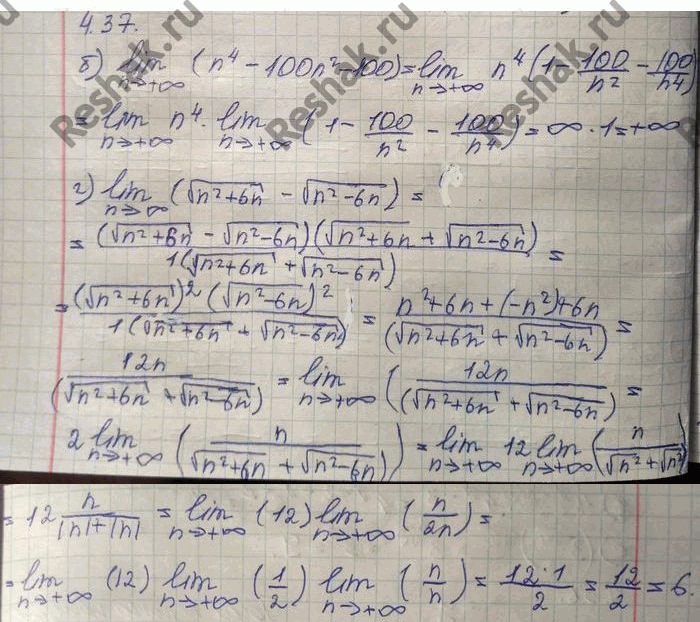 4.37.
б) lim n→+∞ (n⁴ - 100n² - 100) = lim n→+∞ n⁴ (1 - 100/n² - 100/n⁴)
= lim n→+∞ n⁴ · lim n→+∞ (1 - 100/n² - 100/n⁴) = ∞ · 1 = +∞
г) lim n→∞ (√(n²+6n) - √(n²-6n)) =
= (√(n²+6n) - √(n²-6n))(√(n²+6n) + √(n²-6n)) / 1(√(n²+6n) + √(n²-6n)) =
= (√(n²+6n))² (√(n²-6n))² / 1(√(n²+6n) + √(n²-6n)) = n²+6n+(-n²)+6n / (√(n²+6n) + √(n²-6n)) =
12n / (√(n²+6n) + √(n²-6n)) = lim n→+∞ (12n / ((√(n²+6n) + √(n²-6n))) =
2 lim n→+∞ (n / (√(n²+6n) + √(n²-6n))) = lim n→+∞ 12 lim n→+∞ (n / √n² + √n²)
= 12 n / |n|+|n| = lim n→+∞ (12) lim n→+∞ (n/2n) =
= lim n→+∞ (12) lim n→+∞ (1/2) lim n→+∞ (n/n) = 12·1/2 = 12/2 = 6.
Reshak.ru
Reshak.ru
Reshak.ru